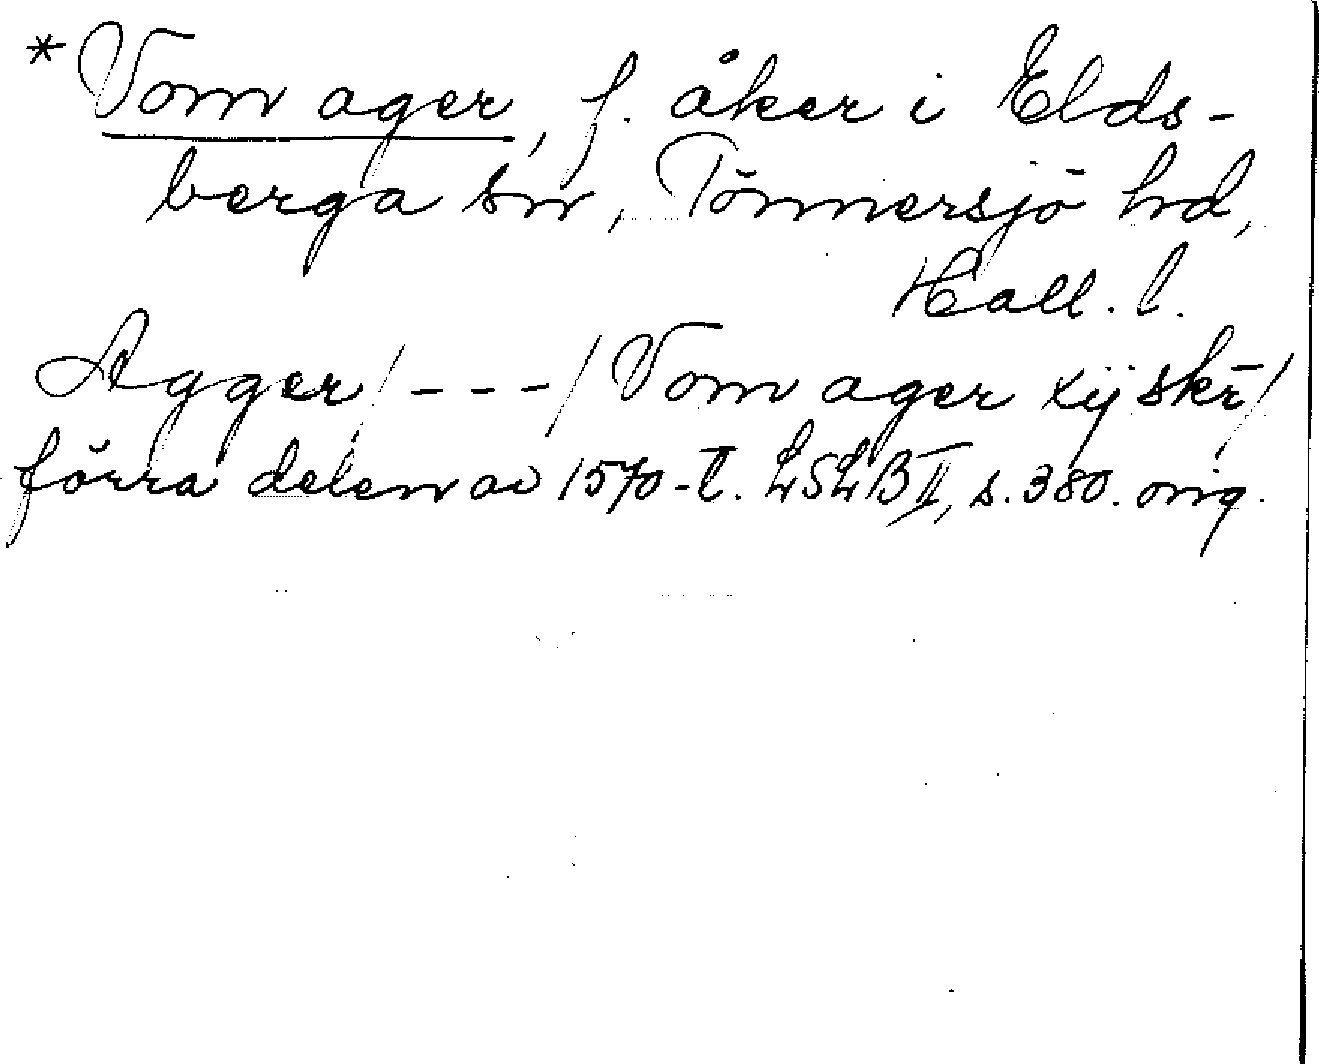 * Vom ager, f. åker i Elds-
berga sn, Tönnersjö hd,
Hall. l.
Agger /---/ Vom ager xij skr̄/
förra delen av 1570-t. LSLB II, s. 380. orig.